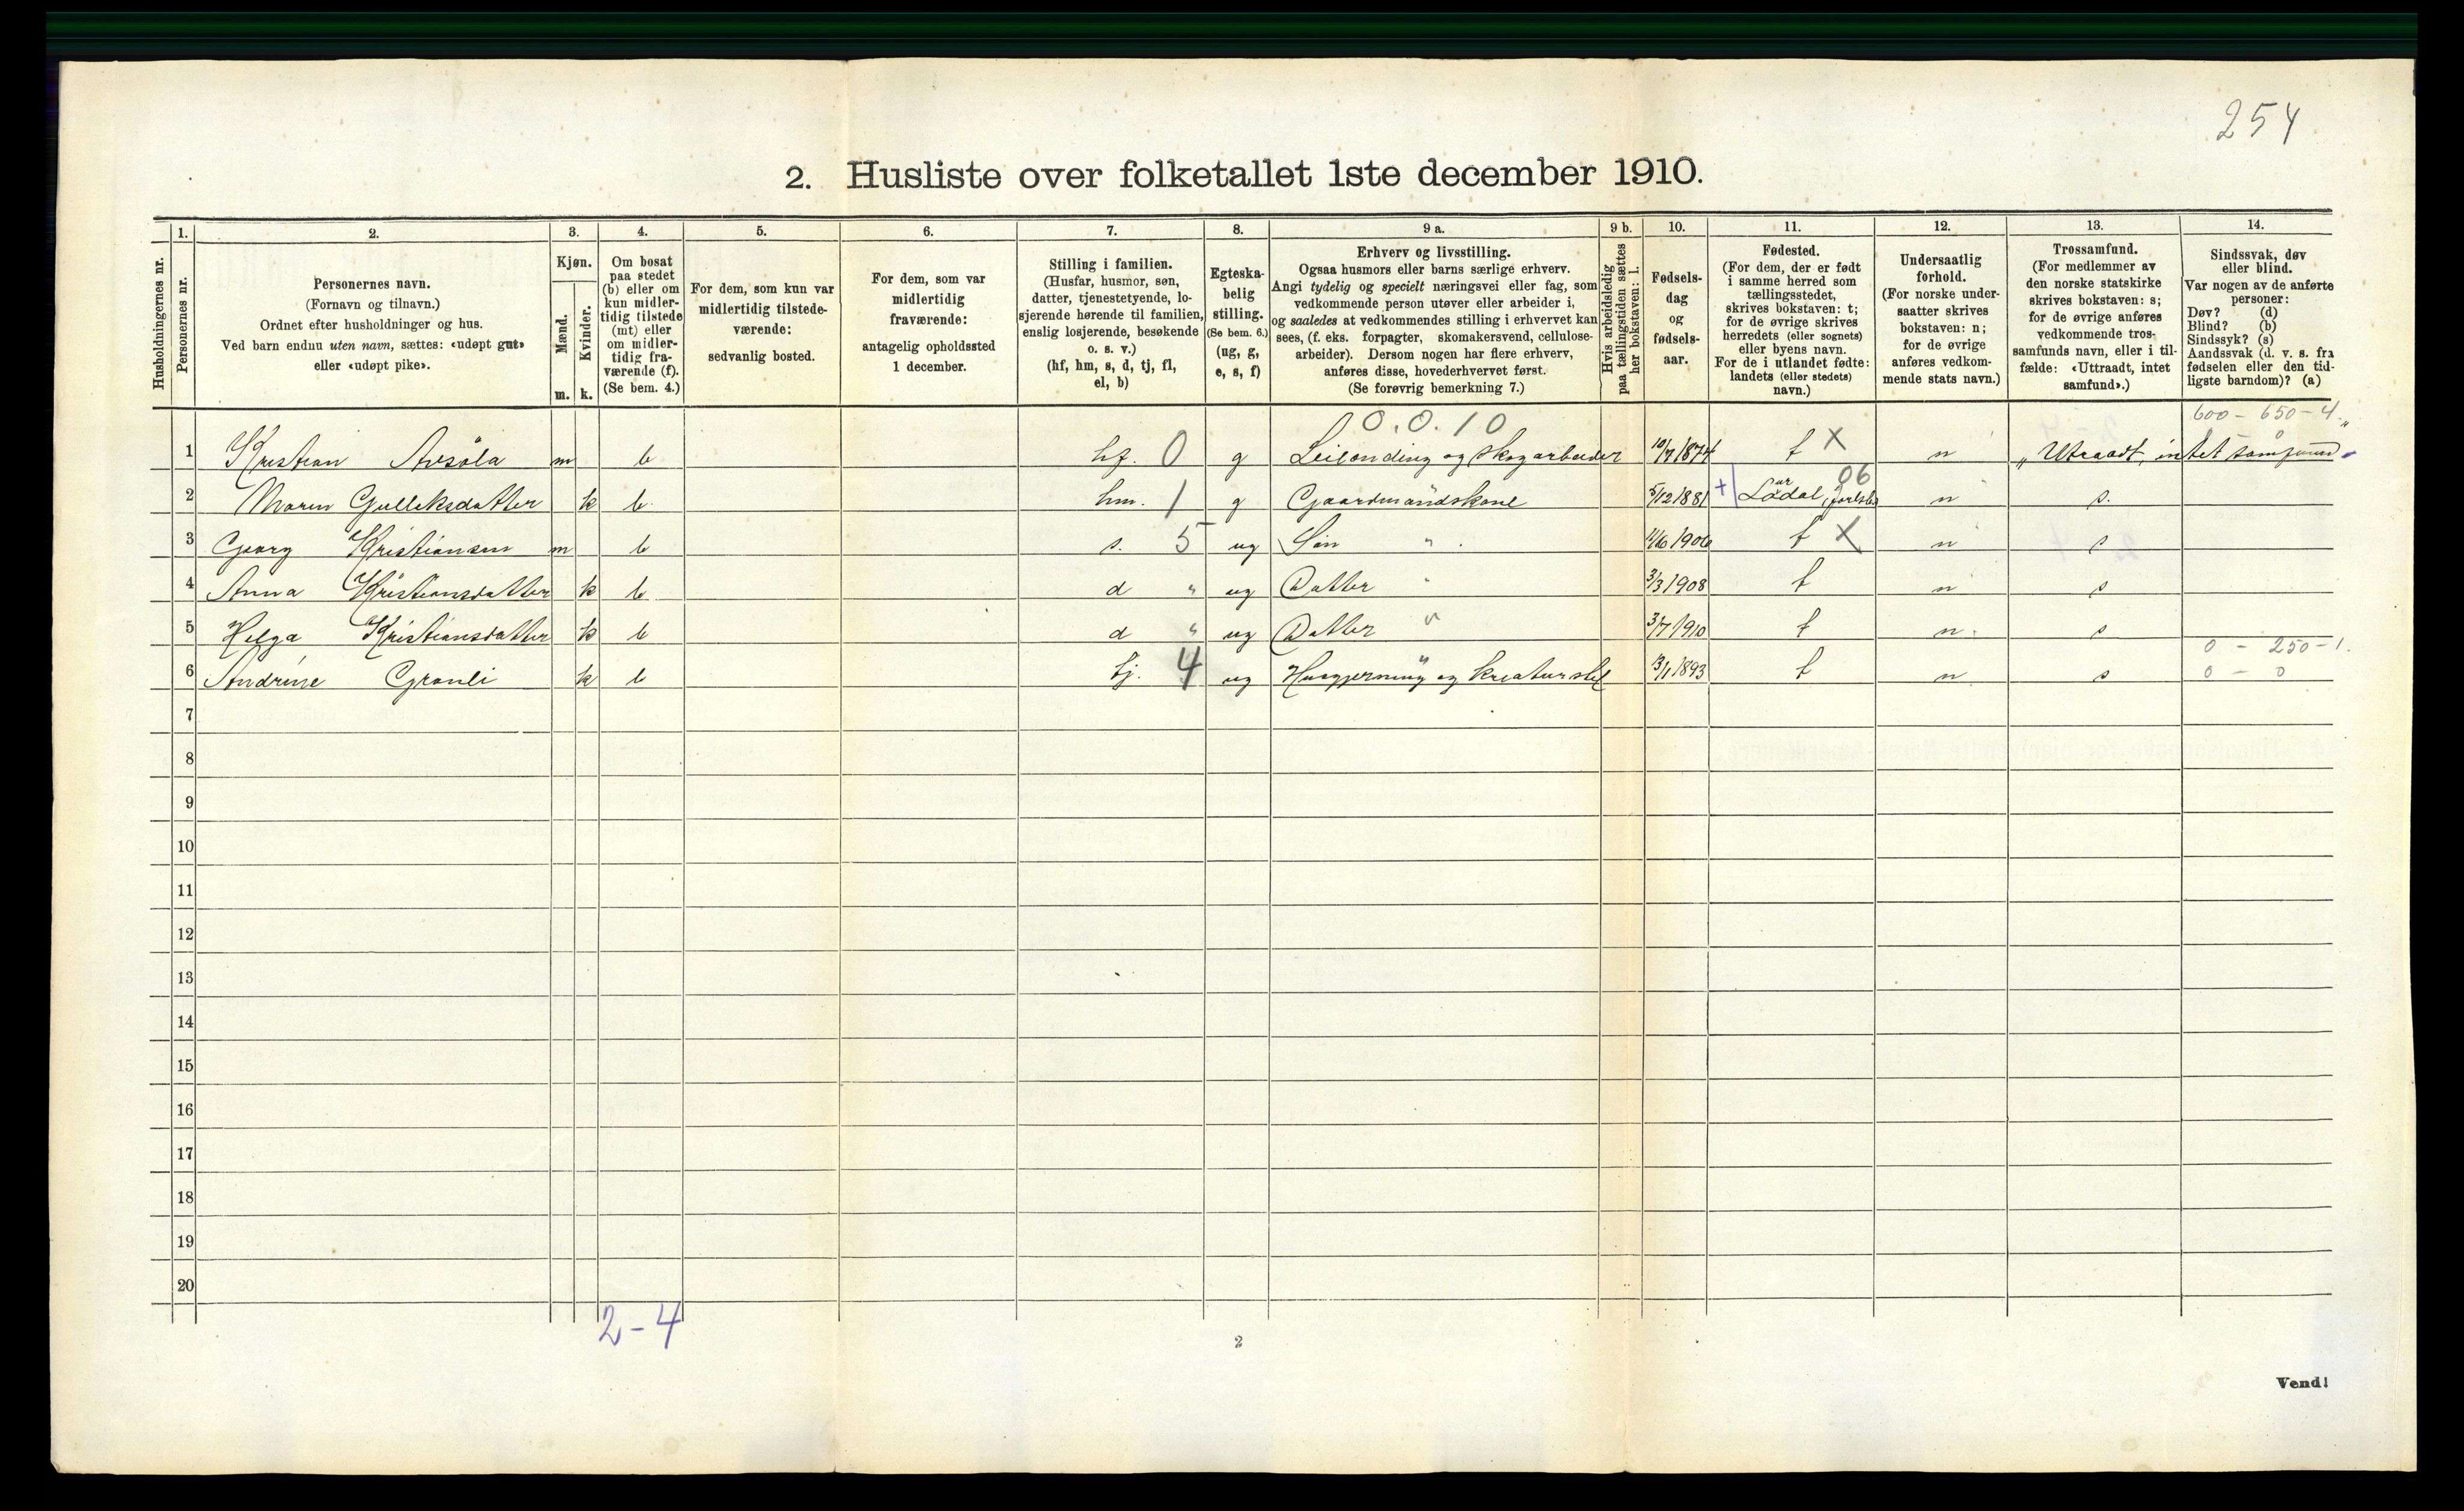 254
2. Husliste over folketallet 1ste december 1910.
Husholdningernes nr.
1.
Personernes nr.
2.
Personernes navn.
(Fornavn og tilnavn.)
Ordnet efter husholdninger og hus.
Ved barn endnu uten navn, sættes: «udøpt gut»
eller «udøpt pike».
3.
Kjøn.
Mænd.
Kvinder.
m. k.
4.
Om bosat
paa stedet
(b) eller om
kun midler-
tidig tilstede
(mt) eller
om midler-
tidig fra-
værende (f).
(Se bem. 4.)
5.
For dem, som kun var
midlertidig tilstede-
værende:
sedvanlig bosted.
6.
For dem, som var
midlertidig
fraværende:
antagelig opholdssted
1 december.
7.
Stilling i familien.
(Husfar, husmor, søn,
datter, tjenestetyende, lo-
sjerende hørende til familien,
enslig losjerende, besøkende
o. s. v.)
(hf, hm, s, d, tj, fl,
el, b)
8.
Egteska-
belig
stilling.
(Se bem. 6.)
(ug, g,
e, s, f)
9 a.
Erhverv og livsstilling.
Ogsaa husmors eller barns særlige erhverv.
Angi tydelig og specielt næringsvei eller fag, som
vedkommende person utøver eller arbeider i,
og saaledes at vedkommendes stilling i erhvervet kan
sees, (f. eks. forpagter, skomakersvend, cellulose-
arbeider). Dersom nogen har flere erhverv,
anføres disse, hovederhvervet først.
(Se forøvrig bemerkning 7.)
9 b.
Hvis arbeidsledig
paa tællingstiden sættes
her bokstaven: l.
10.
Fødsels-
dag
og
fødsels-
aar.
11.
Fødested.
(For dem, der er født
i samme herred som
tællingsstedet,
skrives bokstaven: t;
for de øvrige skrives
herredets (eller sognets)
eller byens navn.
For de i utlandet fødte:
landets (eller stedets)
navn.)
12.
Undersaatlig
forhold.
(For norske under-
saatter skrives
bokstaven: n;
for de øvrige
anføres vedkom-
mende stats navn.)
13.
Trossamfund.
(For medlemmer av
den norske statskirke
skrives bokstaven: s;
for de øvrige anføres
vedkommende tros-
samfunds navn, eller i til-
fælde: «Uttraadt, intet
samfund».)
14.
Sindssvak, døv
eller blind.
Var nogen av de anførte
personer:
Døv? (d)
Blind? (b)
Sindssyk? (s)
Aandssvak (d. v. s. fra
fødselen eller den tid-
ligste barndom)? (a)
0.0.10 600 - 650 - 4
1 Kristian m b hf. 0 g Leilending og skogarbeider 10/7 1874 t X n „Utraadt, intet samfund"
06
2 Maren Gulleksdatter k b hm. 1 g Gaardmandskone 5/12 1881 + n s.
3 Georg Kristiansen m b s. 5 ug Søn " 1906 t X n s
4 Anna Kristiansdatter k b d " ug Datter " 3/3 1908 t n s
5 Helga Kristiansdatter k b d " ug Datter " 3/7 1910 t n s
0 - 250 - 1.
6 Andrine Granli k b tj. 4 ug Husgjerning og kreaturstel 13/1 1893 t n s 0 - 0
7
8
9
10
11
12
13
14
15
16
17
18
19
20
2 - 4
2
Vend!